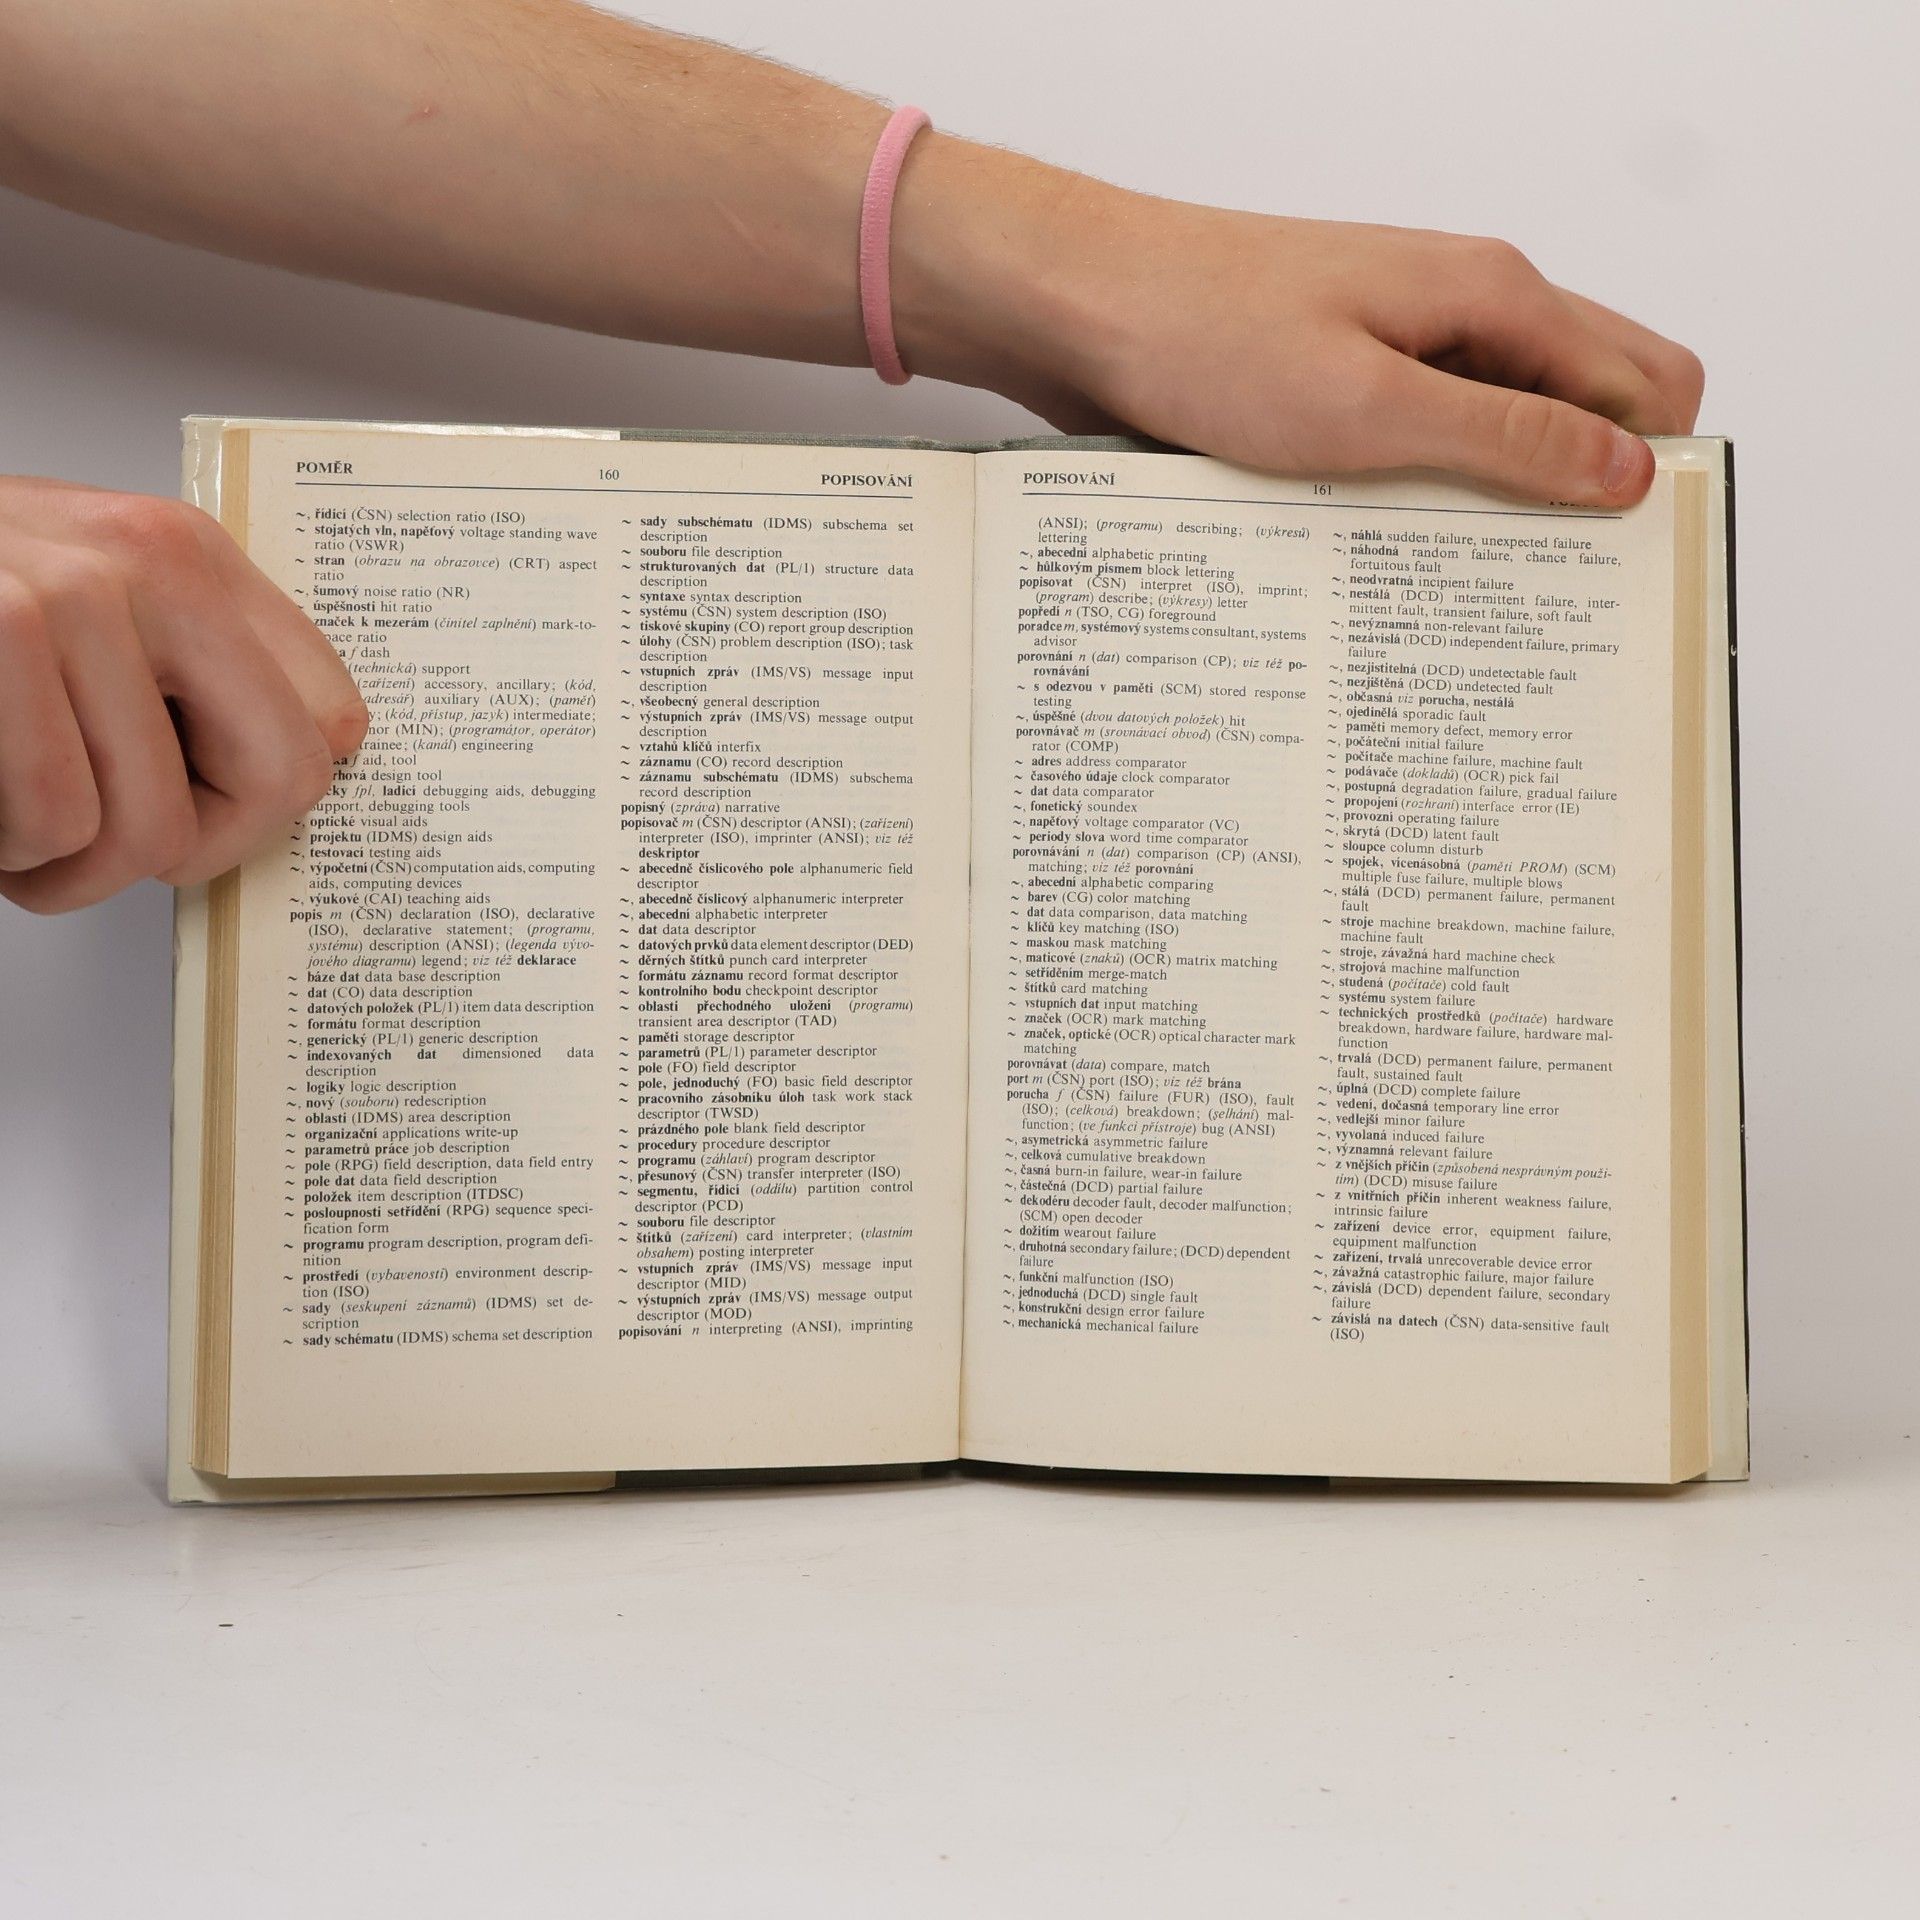 POMĚR 160 POPISOVÁNÍ
~, řídicí (ČSN) selection ratio (ISO)
~ stojatých vln, napěťový voltage standing wave
ratio (VSWR)
~ stran (obrazu na obrazovce) (CRT) aspect
ratio
~, šumový noise ratio (NR)
úspěšnosti hit ratio
značek k mezerám (činitel zaplnění) mark-to-
ratio
f dash
(technická) support
(zařízení) accessory, ancillary; (kód,
adresář) auxiliary (AUX); (paměť)
(kód, přístup, jazyk) intermediate;
(MIN); (programátor, operátor)
trainee; (kanál) engineering
f aid, tool
design tool
fpl, ladicí debugging aids, debugging
support, debugging tools
~, optické visual aids
~ projektu (IDMS) design aids
~, testovací testing aids
~, výpočetní (ČSN) computation aids, computing
aids, computing devices
~, výukové (CAI) teaching aids
popis m (ČSN) declaration (ISO), declarative
(ISO), declarative statement; (programu,
systému) description (ANSI); (legenda vývo-
jového diagramu) legend; viz též deklarace
~ báze dat data base description
~ dat (CO) data description
~ datových položek (PL/1) item data description
~ formátu format description
~, generický (PL/1) generic description
~ indexovaných dat dimensioned data
description
~ logiky logic description
~, nový (souboru) redescription
~ oblasti (IDMS) area description
~ organizační applications write-up
~ parametrů práce job description
~ pole (RPG) field description, data field entry
~ pole dat data field description
~ položek item description (ITDSC)
~ posloupnosti setřídění (RPG) sequence speci-
fication form
~ programu program description, program defi-
nition
~ prostředí (vybavenosti) environment descrip-
tion (ISO)
~ sady (seskupení záznamů) (IDMS) set de-
scription
~ sady schématu (IDMS) schema set description
~ sady subschématu (IDMS) subschema set
description
~ souboru file description
~ strukturovaných dat (PL/1) structure data
description
~ syntaxe syntax description
~ systému (ČSN) system description (ISO)
~ tiskové skupiny (CO) report group description
~ úlohy (ČSN) problem description (ISO); task
description
~ vstupních zpráv (IMS/VS) message input
description
~, všeobecný general description
~ výstupních zpráv (IMS/VS) message output
description
~ vztahů klíčů interfix
~ záznamu (CO) record description
~ záznamu subschématu (IDMS) subschema
record description
popisný (zpráva) narrative
popisovač m (ČSN) descriptor (ANSI); (zařízení)
interpreter (ISO), imprinter (ANSI); viz též
deskriptor
~ abecedně číslicového pole alphanumeric field
descriptor
~, abecedně číslicový alphanumeric interpreter
~, abecední alphabetic interpreter
~ dat data descriptor
~ datových prvků data element descriptor (DED)
~ děrných štítků punch card interpreter
~ formátu záznamu record format descriptor
~ kontrolního bodu checkpoint descriptor
~ oblasti přechodného uložení (programu)
transient area descriptor (TAD)
~ paměti storage descriptor
~ parametrů (PL/1) parameter descriptor
~ pole (FO) field descriptor
~ pole, jednoduchý (FO) basic field descriptor
~ pracovního zásobníku úloh task work stack
descriptor (TWSD)
~ prázdného pole blank field descriptor
~ procedury procedure descriptor
~ programu (záhlaví) program descriptor
~, přesunový (ČSN) transfer interpreter (ISO)
~ segmentu, řídicí (oddílu) partition control
descriptor (PCD)
~ souboru file descriptor
~ štítků (zařízení) card interpreter; (vlastním
obsahem) posting interpreter
~ vstupních zpráv (IMS/VS) message input
descriptor (MID)
~ výstupních zpráv (IMS/VS) message output
descriptor (MOD)
popisování n interpreting (ANSI), imprinting
POPISOVÁNÍ 161
(ANSI); (programu) describing; (výkresů)
lettering
~, abecední alphabetic printing
~ hůlkovým písmem block lettering
popisovat (ČSN) interpret (ISO), imprint;
(program) describe; (výkresy) letter
popředí n (TSO, CG) foreground
poradce m, systémový systems consultant, systems
advisor
porovnání n (dat) comparison (CP); viz též po-
rovnávání
~ s odezvou v paměti (SCM) stored response
testing
~, úspěšné (dvou datových položek) hit
porovnávač m (srovnávací obvod) (ČSN) compa-
rator (COMP)
~ adres address comparator
~ časového údaje clock comparator
~ dat data comparator
~, fonetický soundex
~, napěťový voltage comparator (VC)
~ periody slova word time comparator
porovnávání n (dat) comparison (CP) (ANSI),
matching; viz též porovnání
~, abecední alphabetic comparing
~ barev (CG) color matching
~ dat data comparison, data matching
~ klíčů key matching (ISO)
~ maskou mask matching
~, maticové (znaků) (OCR) matrix matching
~ setříděním merge-match
~ štítků card matching
~ vstupních dat input matching
~ značek (OCR) mark matching
~ značek, optické (OCR) optical character mark
matching
porovnávat (data) compare, match
port m (ČSN) port (ISO); viz též brána
porucha f (ČSN) failure (FUR) (ISO), fault
(ISO); (celková) breakdown; (selhání) mal-
function; (ve funkci přístroje) bug (ANSI)
~, asymetrická asymmetric failure
~, celková cumulative breakdown
~, časná burn-in failure, wear-in failure
~, částečná (DCD) partial failure
~ dekodéru decoder fault, decoder malfunction;
(SCM) open decoder
~ dožitím wearout failure
~, druhotná secondary failure; (DCD) dependent
failure
~, funkční malfunction (ISO)
~, jednoduchá (DCD) single fault
~, konstrukční design error failure
~, mechanická mechanical failure
~, náhlá sudden failure, unexpected failure
~, náhodná random failure, chance failure,
fortuitous fault
~, neodvratná incipient failure
~, nestálá (DCD) intermittent failure, inter-
mittent fault, transient failure, soft fault
~, nevýznamná non-relevant failure
~, nezávislá (DCD) independent failure, primary
failure
~, nezjistitelná (DCD) undetectable fault
~, nezjištěná (DCD) undetected fault
~, občasná viz porucha, nestálá
~, ojedinělá sporadic fault
~ paměti memory defect, memory error
~, počáteční initial failure
~ počítače machine failure, machine fault
~ podávače (dokladů) (OCR) pick fail
~, postupná degradation failure, gradual failure
~ propojení (rozhraní) interface error (IE)
~, provozní operating failure
~, skrytá (DCD) latent fault
~ sloupce column disturb
~ spojek, vícenásobná (paměti PROM) (SCM)
multiple fuse failure, multiple blows
~, stálá (DCD) permanent failure, permanent
fault
~ stroje machine breakdown, machine failure,
machine fault
~ stroje, závažná hard machine check
~, strojová machine malfunction
~, studená (počítače) cold fault
~ systému system failure
~ technických prostředků (počítače) hardware
breakdown, hardware failure, hardware mal-
function
~, trvalá (DCD) permanent failure, permanent
fault, sustained fault
~, úplná (DCD) complete failure
~ vedení, dočasná temporary line error
~, vedlejší minor failure
~, vyvolaná induced failure
~, významná relevant failure
~ z vnějších příčin (způsobená nesprávným použi-
tím) (DCD) misuse failure
~ z vnitřních příčin inherent weakness failure,
intrinsic failure
~ zařízení device error, equipment failure,
equipment malfunction
~ zařízení, trvalá unrecoverable device error
~, závažná catastrophic failure, major failure
~, závislá (DCD) dependent failure, secondary
failure
~ závislá na datech (ČSN) data-sensitive fault
(ISO)